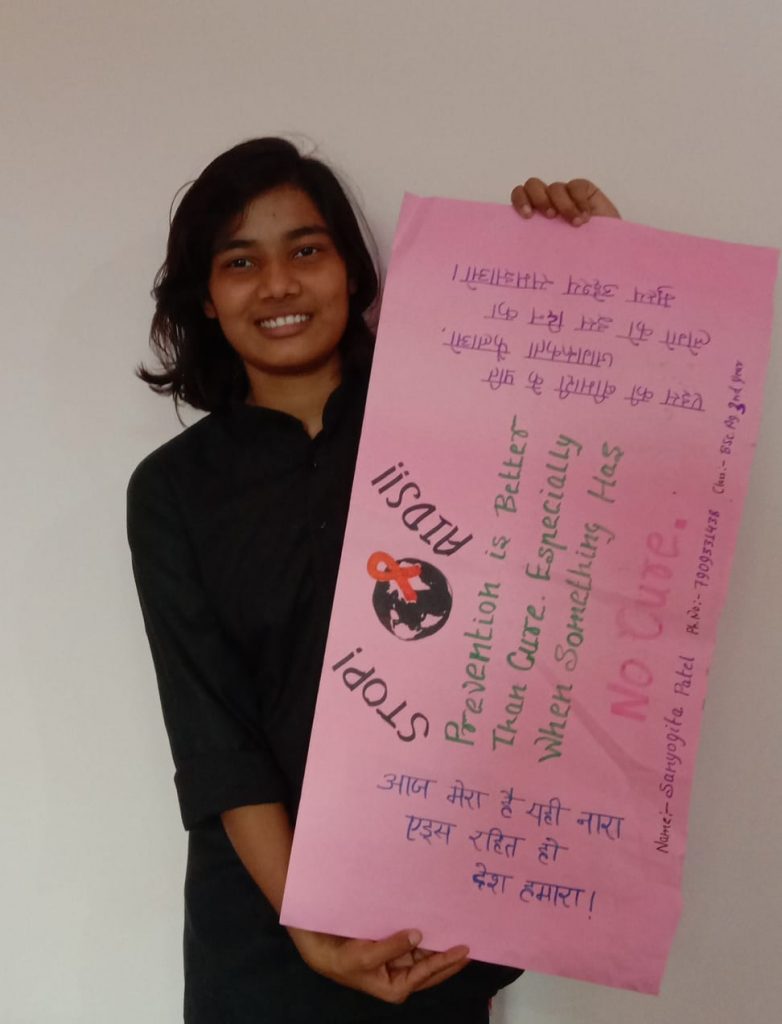 STOP! AIDS!!
Prevention is Better
Than Cure. Especially
When Something Has
No Cure.
आज मेरा है यही नारा
एड्स रहित हो
देश हमारा!
एड्स की बीमारी के प्रति
जागरूकता फैलाओ.
लोगो को इस दिन का
मुख्य उद्देश्य समझाओ।
Name:- Sanyogita Patel Ph.No:- 7909531438 BSc. Ag 3nd year